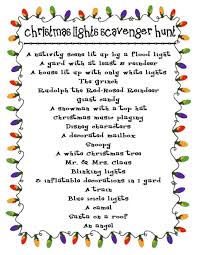 christmas lights scavenger hunt
A nativity scene lit up by a flood light
A yard with at least 8 reindeer
A house lit up with only white lights
The grinch
Rudolph the Red-Nosed Reindeer
Giant candy
A snowman with a top hat
Christmas music playing
Disney characters
A decorated mailbox
Snoopy
A white christmas tree
Mr. & Mrs. Claus
Blinking lights
8 inflatable decorations in 1 yard
A train
Blue icicle lights
A camel
Santa on a roof
An angel